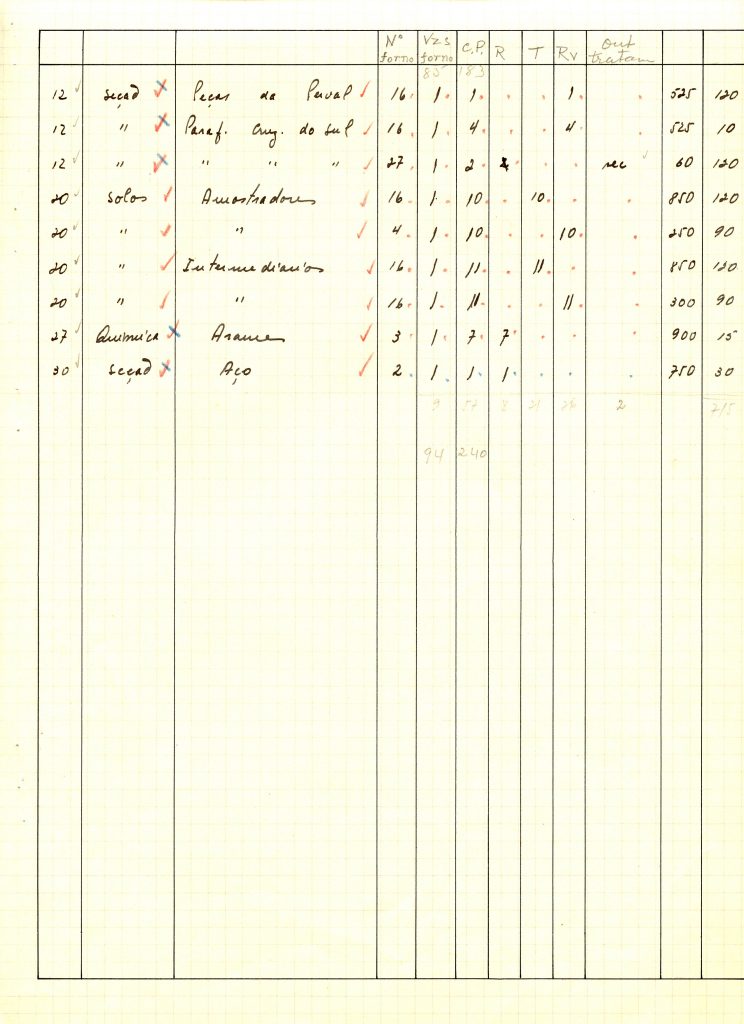 Nº forno Vzs forno C.P. R T Rv Out tratam
85 183
12 seção Peças da 16 1 1 1 525 120
12 " Paraf. Cruz. do sul 16 1 4 4 525 10
12 " " " " 27 1 2 rec 60 120
20 Solos Amostradores 16 1 10 10 850 120
20 " " 4 1 10 10 250 90
20 " Intermediários 16 1 11 11 850 120
20 " " 16 1 11 11 300 90
27 Química Arames 3 1 7 7 900 15
30 seção Aço 2 1 1 1 750 30
9 57 8 21 26 2 715
94 240